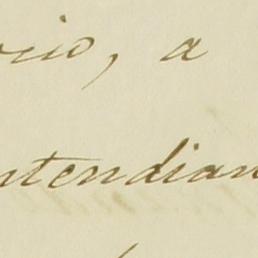 ocio, a
ntendian